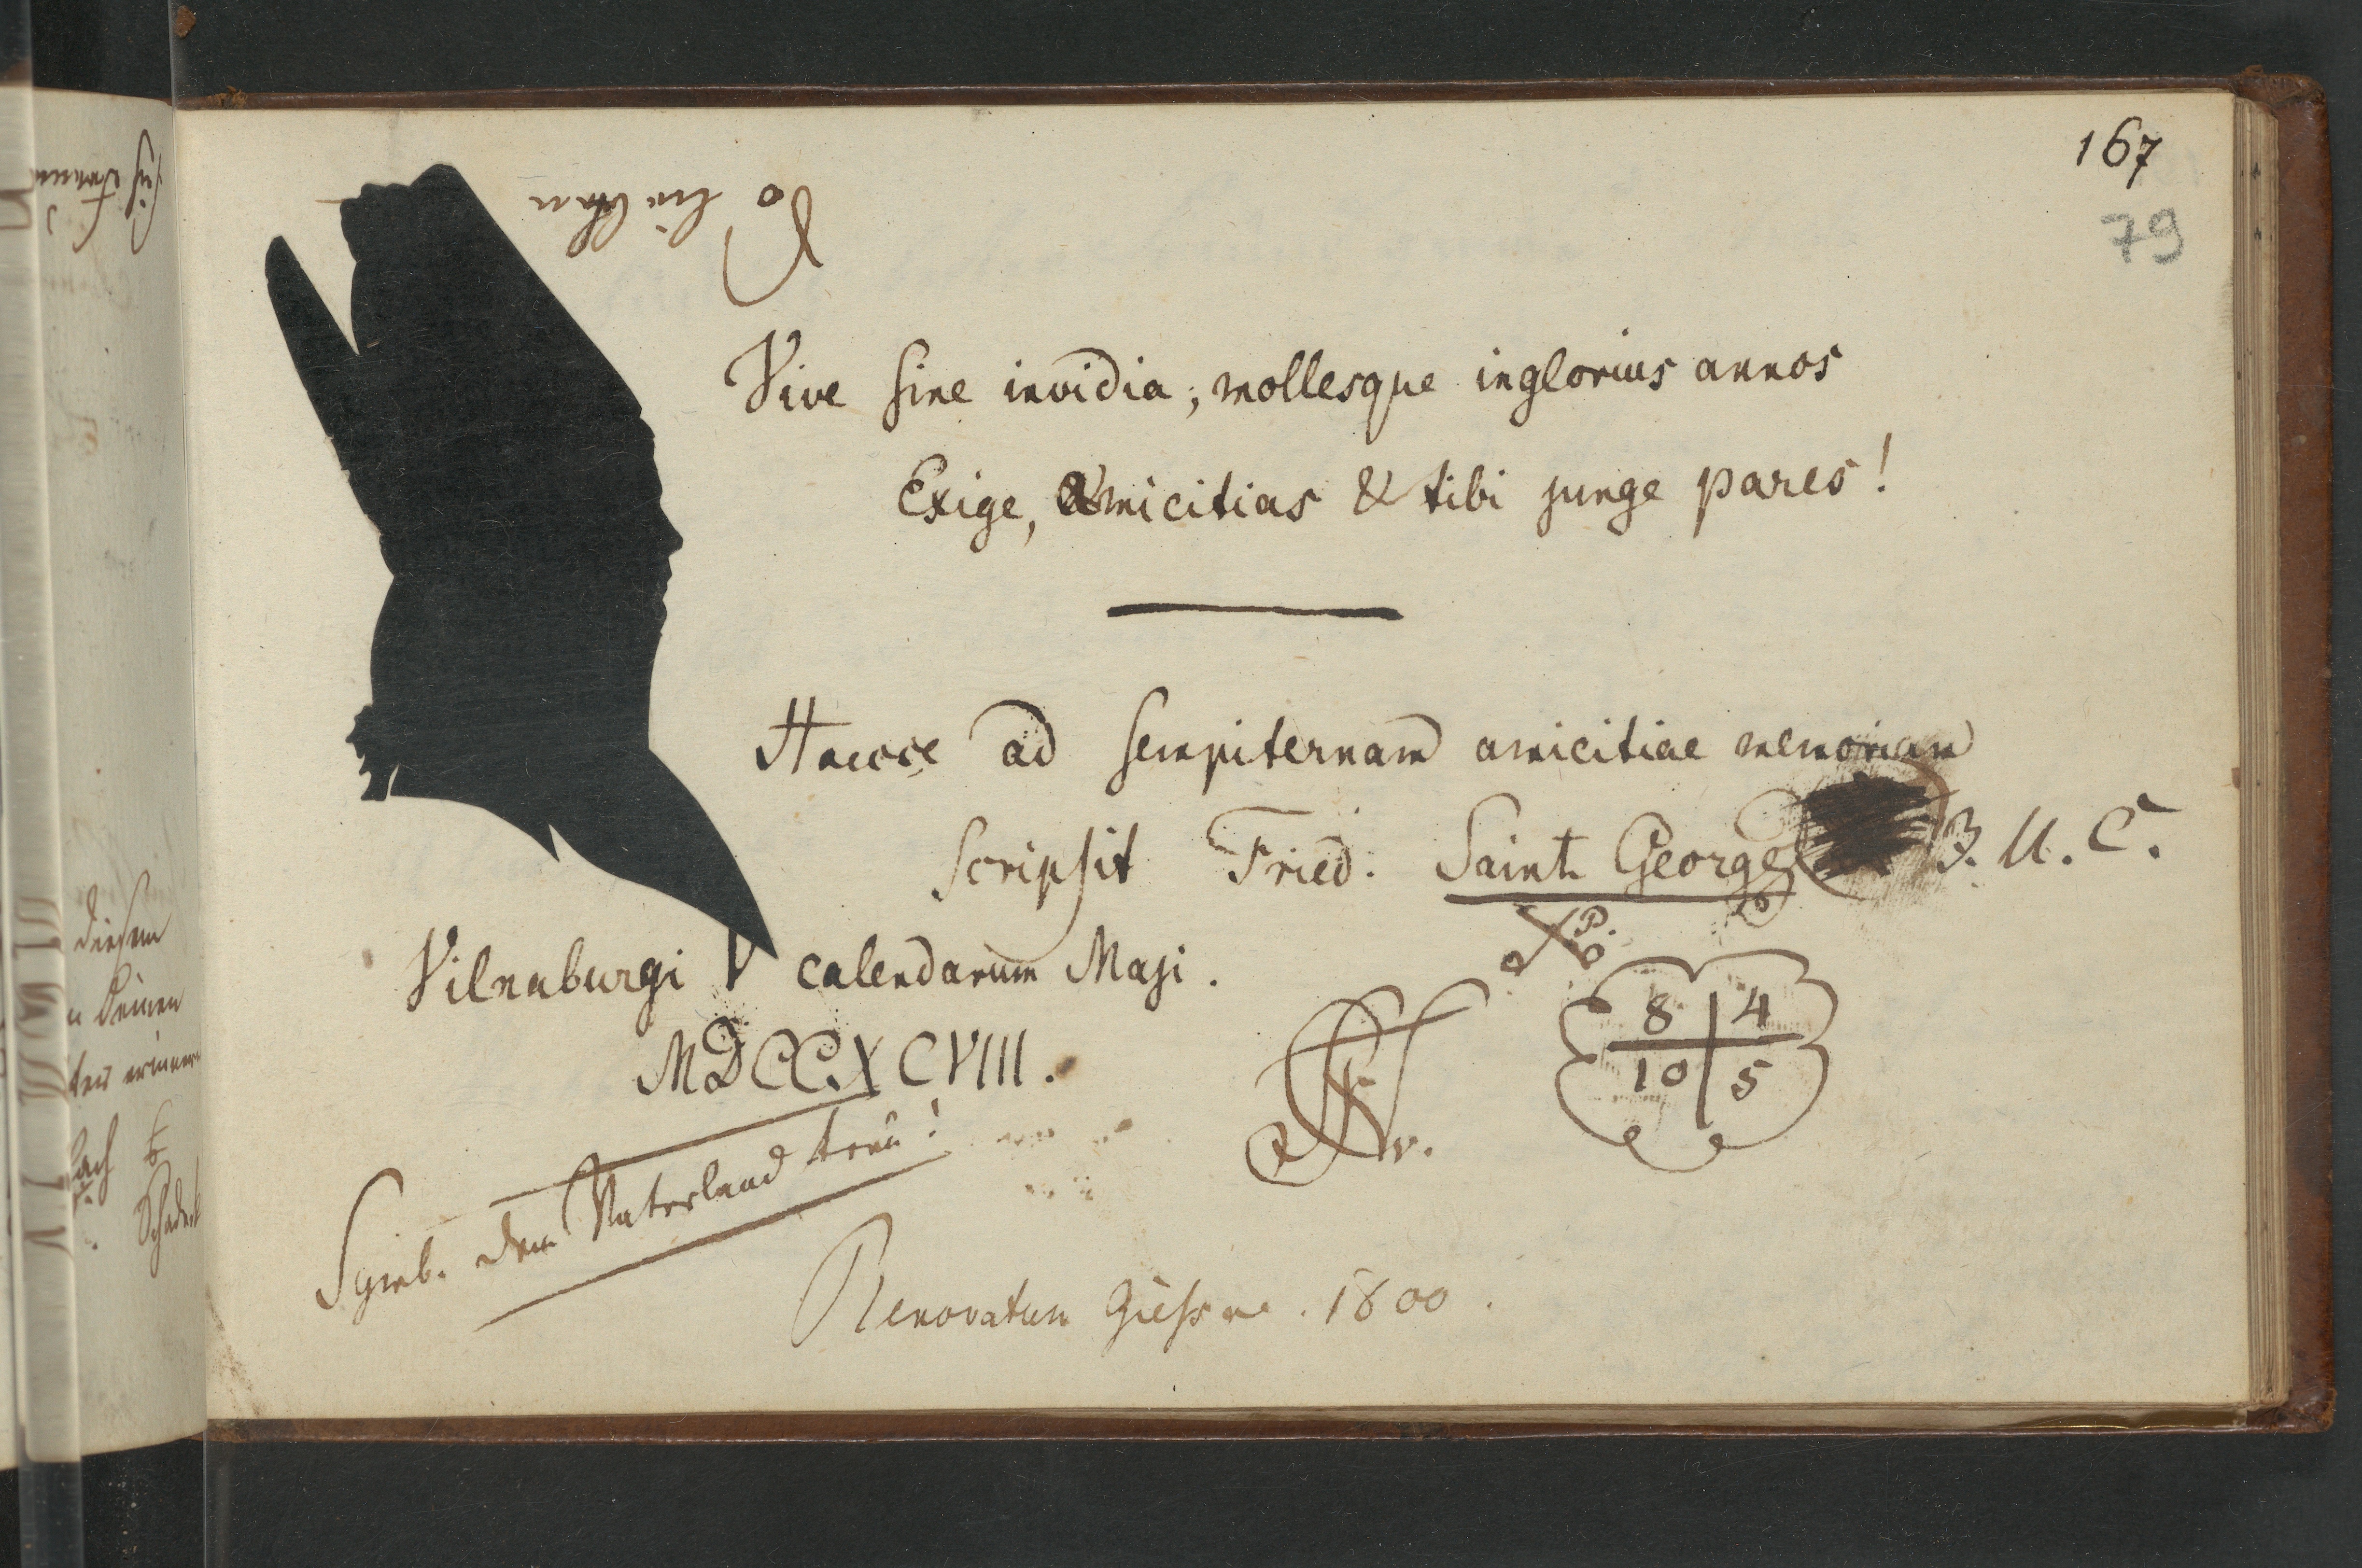 167
79
Vive sine invidia; mollesque inglorius annos
Exige, amicitias & tibi junge pares!
Haecce ad sempiternam amicitiae memoriam
scripsit Fried. Saint George B. U. C.
Vilnaburgi V calendarum Maji.
MDCCXCVIII.
8 4
10 5
Symb. dem Vaterland treu!
Renovatum Giessae. 1800.
diesem
erinnern